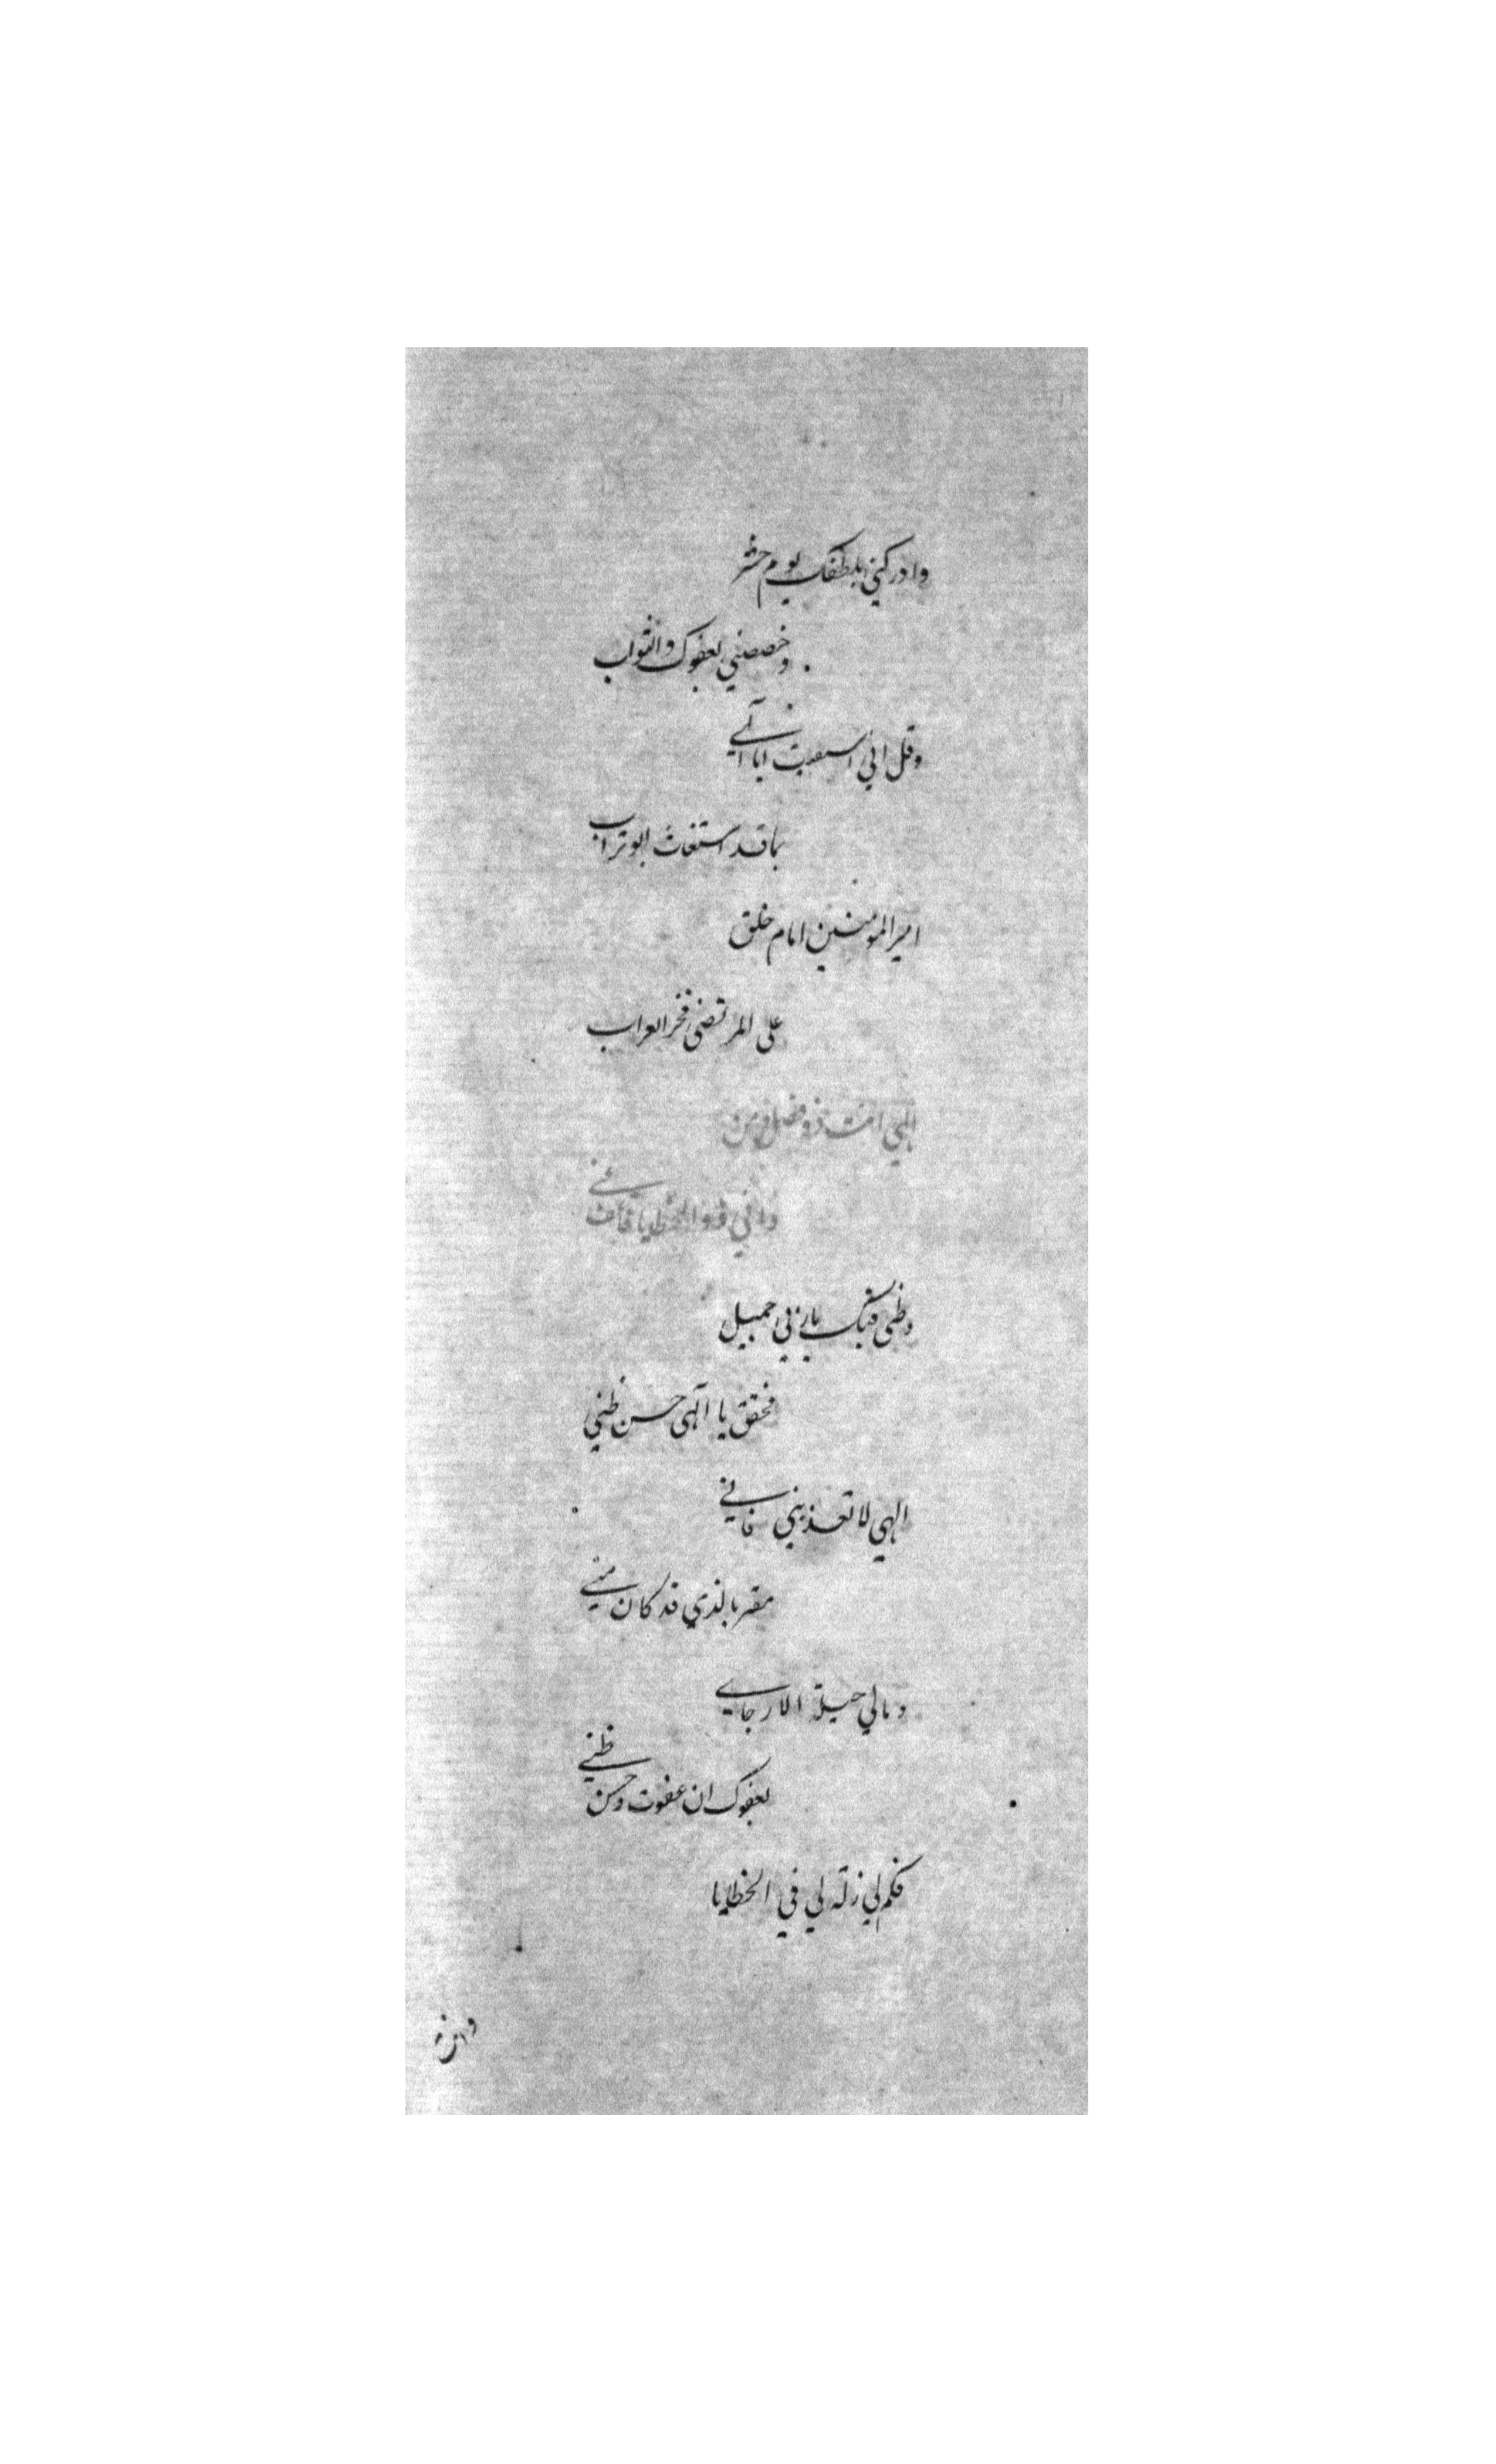 وادركني بلطفك يوم حشر
وخصصني بعفوك والثواب
وقل اني
بما قد استغاث ابو تراب
امير المومنين امام خلق
على المرتضى فخر العراب
الهي انت ذو فضل ومن
واني ذو الخطايا فاعف عني
وظنى فيك يا ربي جميل
فحقق يا آلهى حسن ظني
الهي لا تعذبني فاني
مقر بالذي قد كان مني
ومالي حيلة الا رجايي
بعفوك ان عفوت وحسن ظني
فكم لي زلة لي في الخطايا